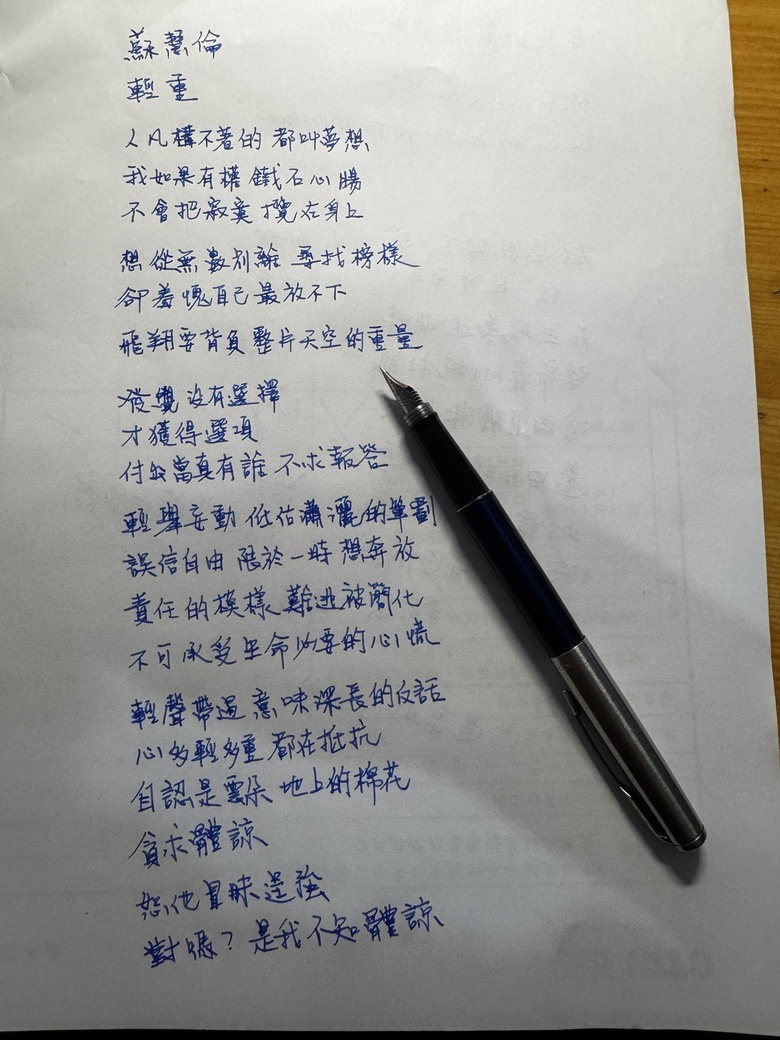 蘇慧倫
輕重
人凡構不著的 都叫夢想
我如果有權 鐵石心腸
不會把寂寞 攬在身上
想從無數別離 尋找榜樣
卻羞愧自己最放不下
飛翔要背負整片天空的重量
發覺沒有選擇
才獲得選項
付出當真有誰 不求報答
輕舉妄動 低估瀟灑的筆劃
誤信自由 限於一時想奔放
責任的模樣 難逃被簡化
不可承受生命必要的心慌
輕聲帶過 意味深長的反話
心多輕多重 都在抵抗
自認是雲朵 地上的棉花
貪求體諒
恕他冒昧逞強
對嗎？是我不知體諒